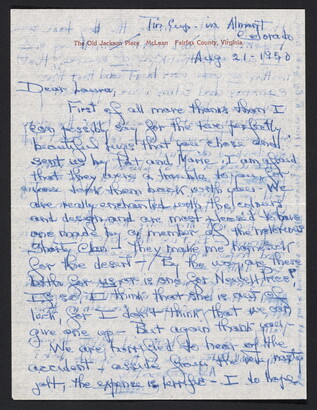 Tin Cup - via Almont
Colorado
The Old Jackson Place McLean Fairfax County, Virginia
Aug 21 - 1950
Dear Laura,
First of all more thanks than I
can possibly say for the two perfectly
beautiful rugs that you chose and
sent us by Pat and Marie. I am afraid
that they were a trouble to you for
you took them back with you - We
are really enchanted with the colours
and design and are most pleased to have
one made by a member of the notorious
Clan! they make me homesick
for the desert - / By the way are these
both for us or is one for
If so, I think that she is out of
luck for I don't think that we can
give one up - But again thank you -
We are terrified to hear of the
accident - aside from the
jolt, the expense is terrific - I do hope